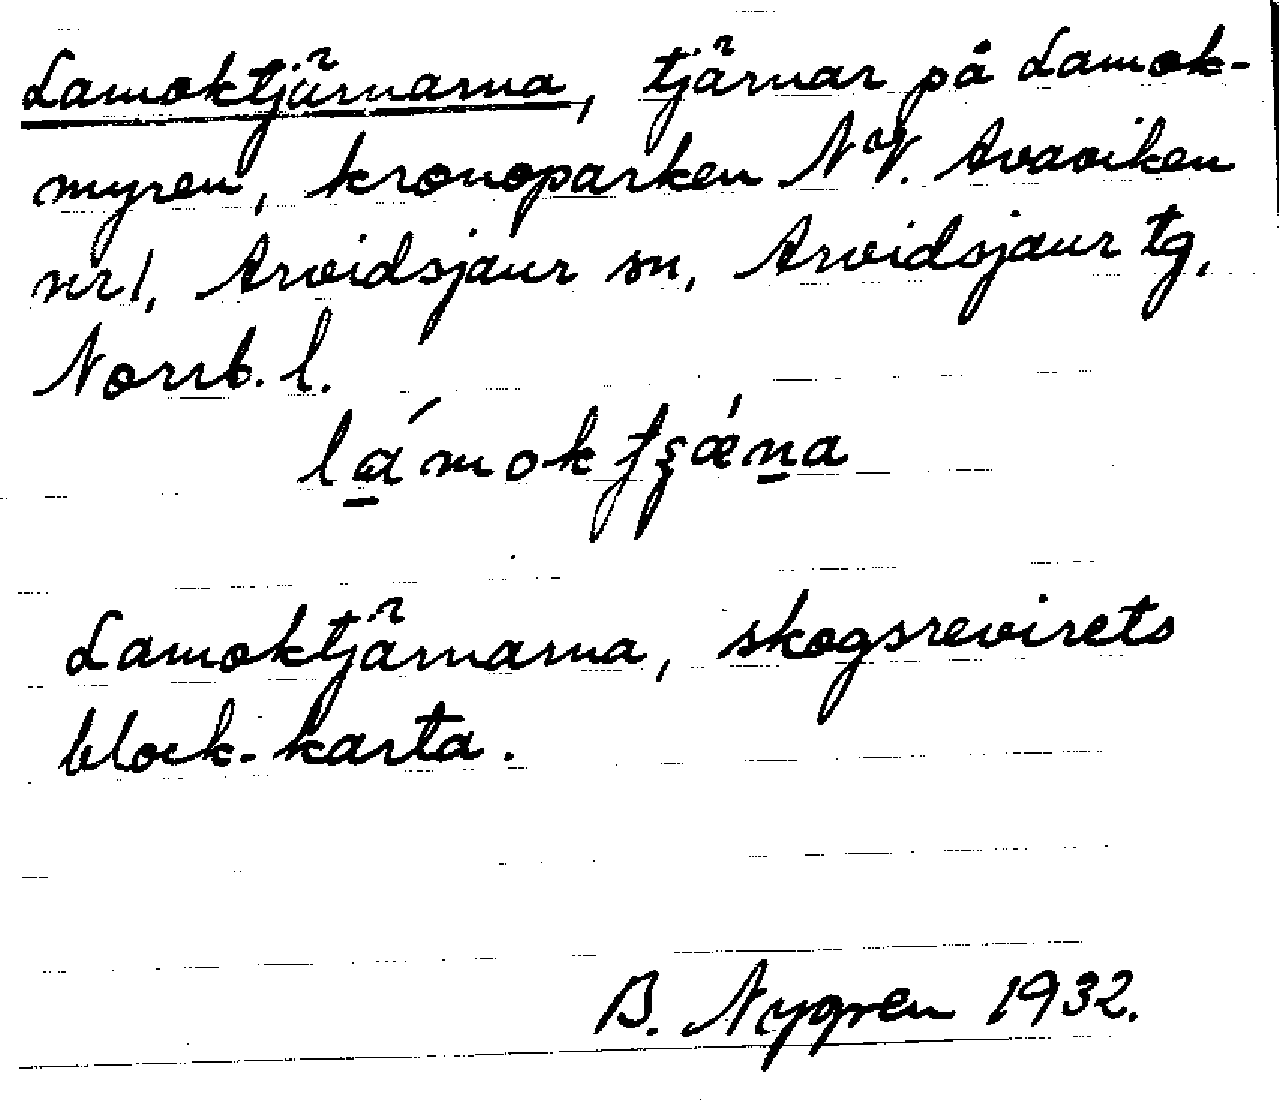 Lamoktjärnarna, tjärnar på Lamok-
myren, kronoparken N av V. Avaviken
nr 1, Arvidsjaur sn, Arvidsjaur tg,
Norrb. l.
lámoktʂǽna
Lamoktjärnarna, skogsrevirets
block-karta.
B. Nygren 1932.